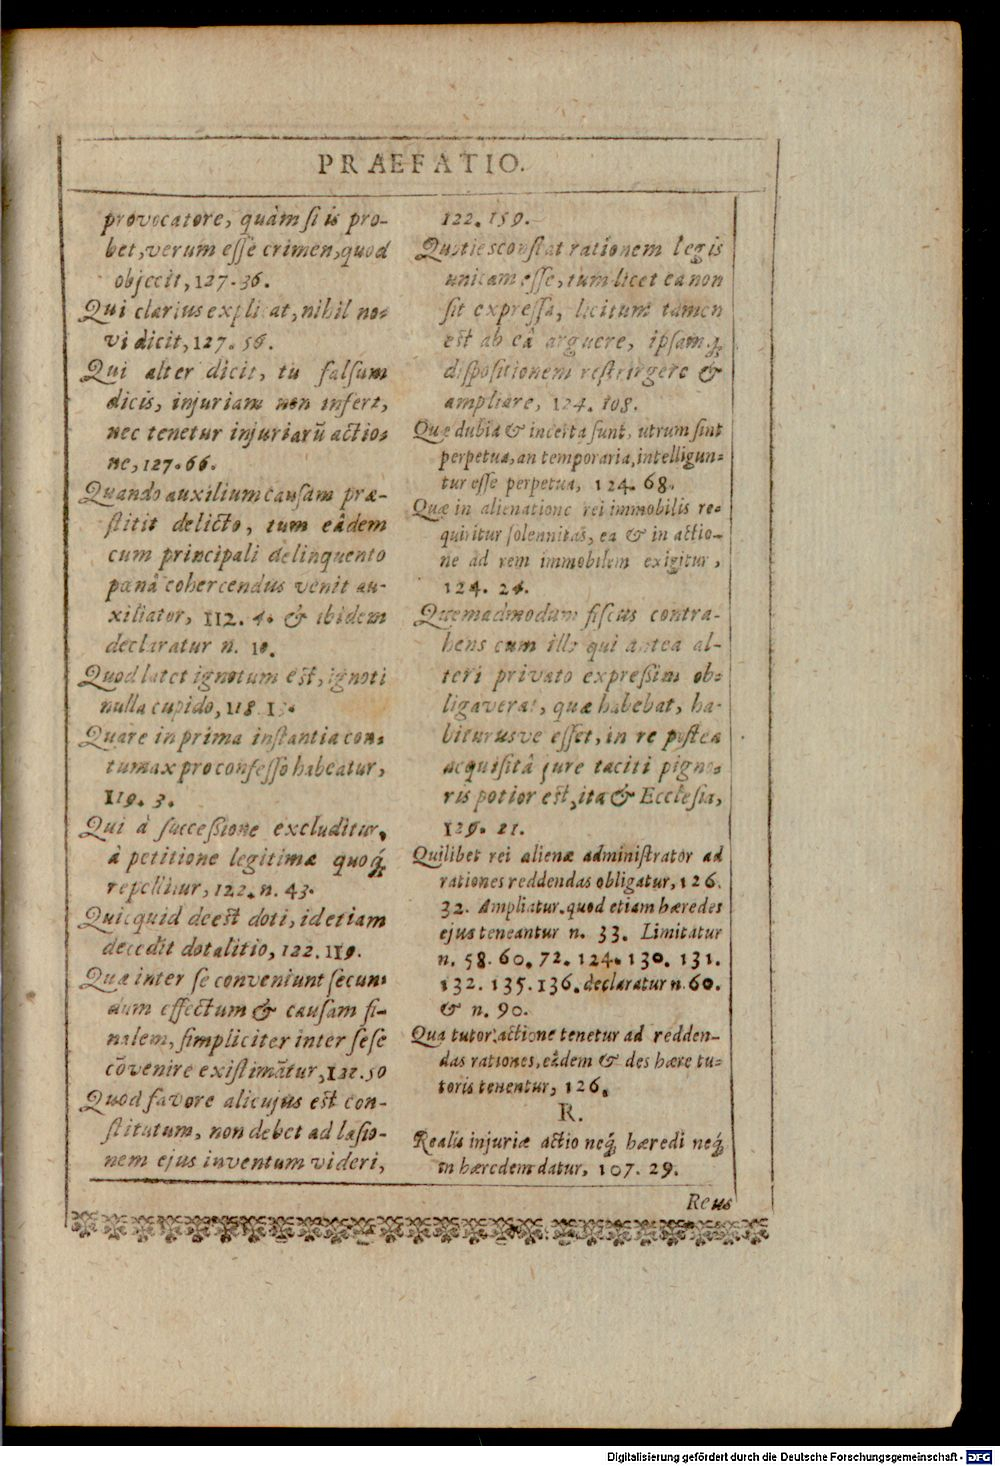 PRAEFATIO.
provocatore, quàm ſi is pro-
bet, verum eſſe crimen, quod
objecit, 127. 36.
Qui clarius explicat, nihil no-
vi dicit, 127. 56.
Qui alter dicit, tu falſum
dicis, injuriam non infert,
nec tenetur injuriarũ actio-
ne, 127. 66.
Quando auxilium cauſam præ-
ſtitit delicto, tum eâdem
cum principali delinquento
pœnâ cohercendus venit au-
xiliator, 112. 4. & ibidem
declaratur n. 10.
Quod latet ignotum eſt, ignoti
nulla cupido, 118. 13.
Quare in prima inſtantia con-
tumax pro confeſſo habeatur,
119. 3.
Qui à ſucceſsione excluditur,
à petitione legitimæ quoq́;
repellitur, 122. n. 43.
Quicquid deeſt doti, id etiam
decedit dotalitio, 122. 119.
Quæ inter ſe conveniunt ſecun-
dum effectum & cauſam fi-
nalem, ſimpliciter inter ſeſe
cõvenire exiſtimãtur, 122. 50
Quod favore alicujus eſt con-
ſtitutum, non debet ad læſio-
nem ejus inventum videri,
122. 159.
Quoties conſtat rationem legis
unicam eſſe, tum licet ea non
ſit expreſſa, licitum tamen
eſt ab eâ arguere, ipſamq́;
diſpoſitionem reſtringere &
ampliare, 124. 108.
Quæ dubia & incerta ſunt, utrum ſint
perpetua, an temporaria, intelligun-
tur eſſe perpetua, 124. 68.
Quæ in alienatione rei immobilis re-
quiritur ſolennitas, ea & in actio-
ne ad rem immobilem exigitur,
124. 24.
Quemadmodum fiſcus contra-
hens cum illo qui antea al-
teri privato expreſsim ob-
ligaverat, quæ habebat, ha-
biturusve eſſet, in re poſtea
acquiſitâ jure taciti pigno-
ris potior eſt, ita & Eccleſia,
129. 21.
Quilibet rei alienæ adminiſtrator ad
rationes reddendas obligatur, 126.
32. Ampliatur, quod etiam hæredes
ejus teneantur n. 33. Limitatur
n. 58. 60. 72. 124. 130. 131.
132. 135. 136. declaratur n. 60.
& n. 90.
Qua tutor actione tenetur ad redden-
das rationes, eâdem & des hære tu-
toris tenentur, 126.
R.
Realis injuriæ actio neq́; hæredi neq́;
in hæredem datur, 107. 29.
Reus
Digitalisierung gefördert durch die Deutsche Forschungsgemeinschaft - DFG